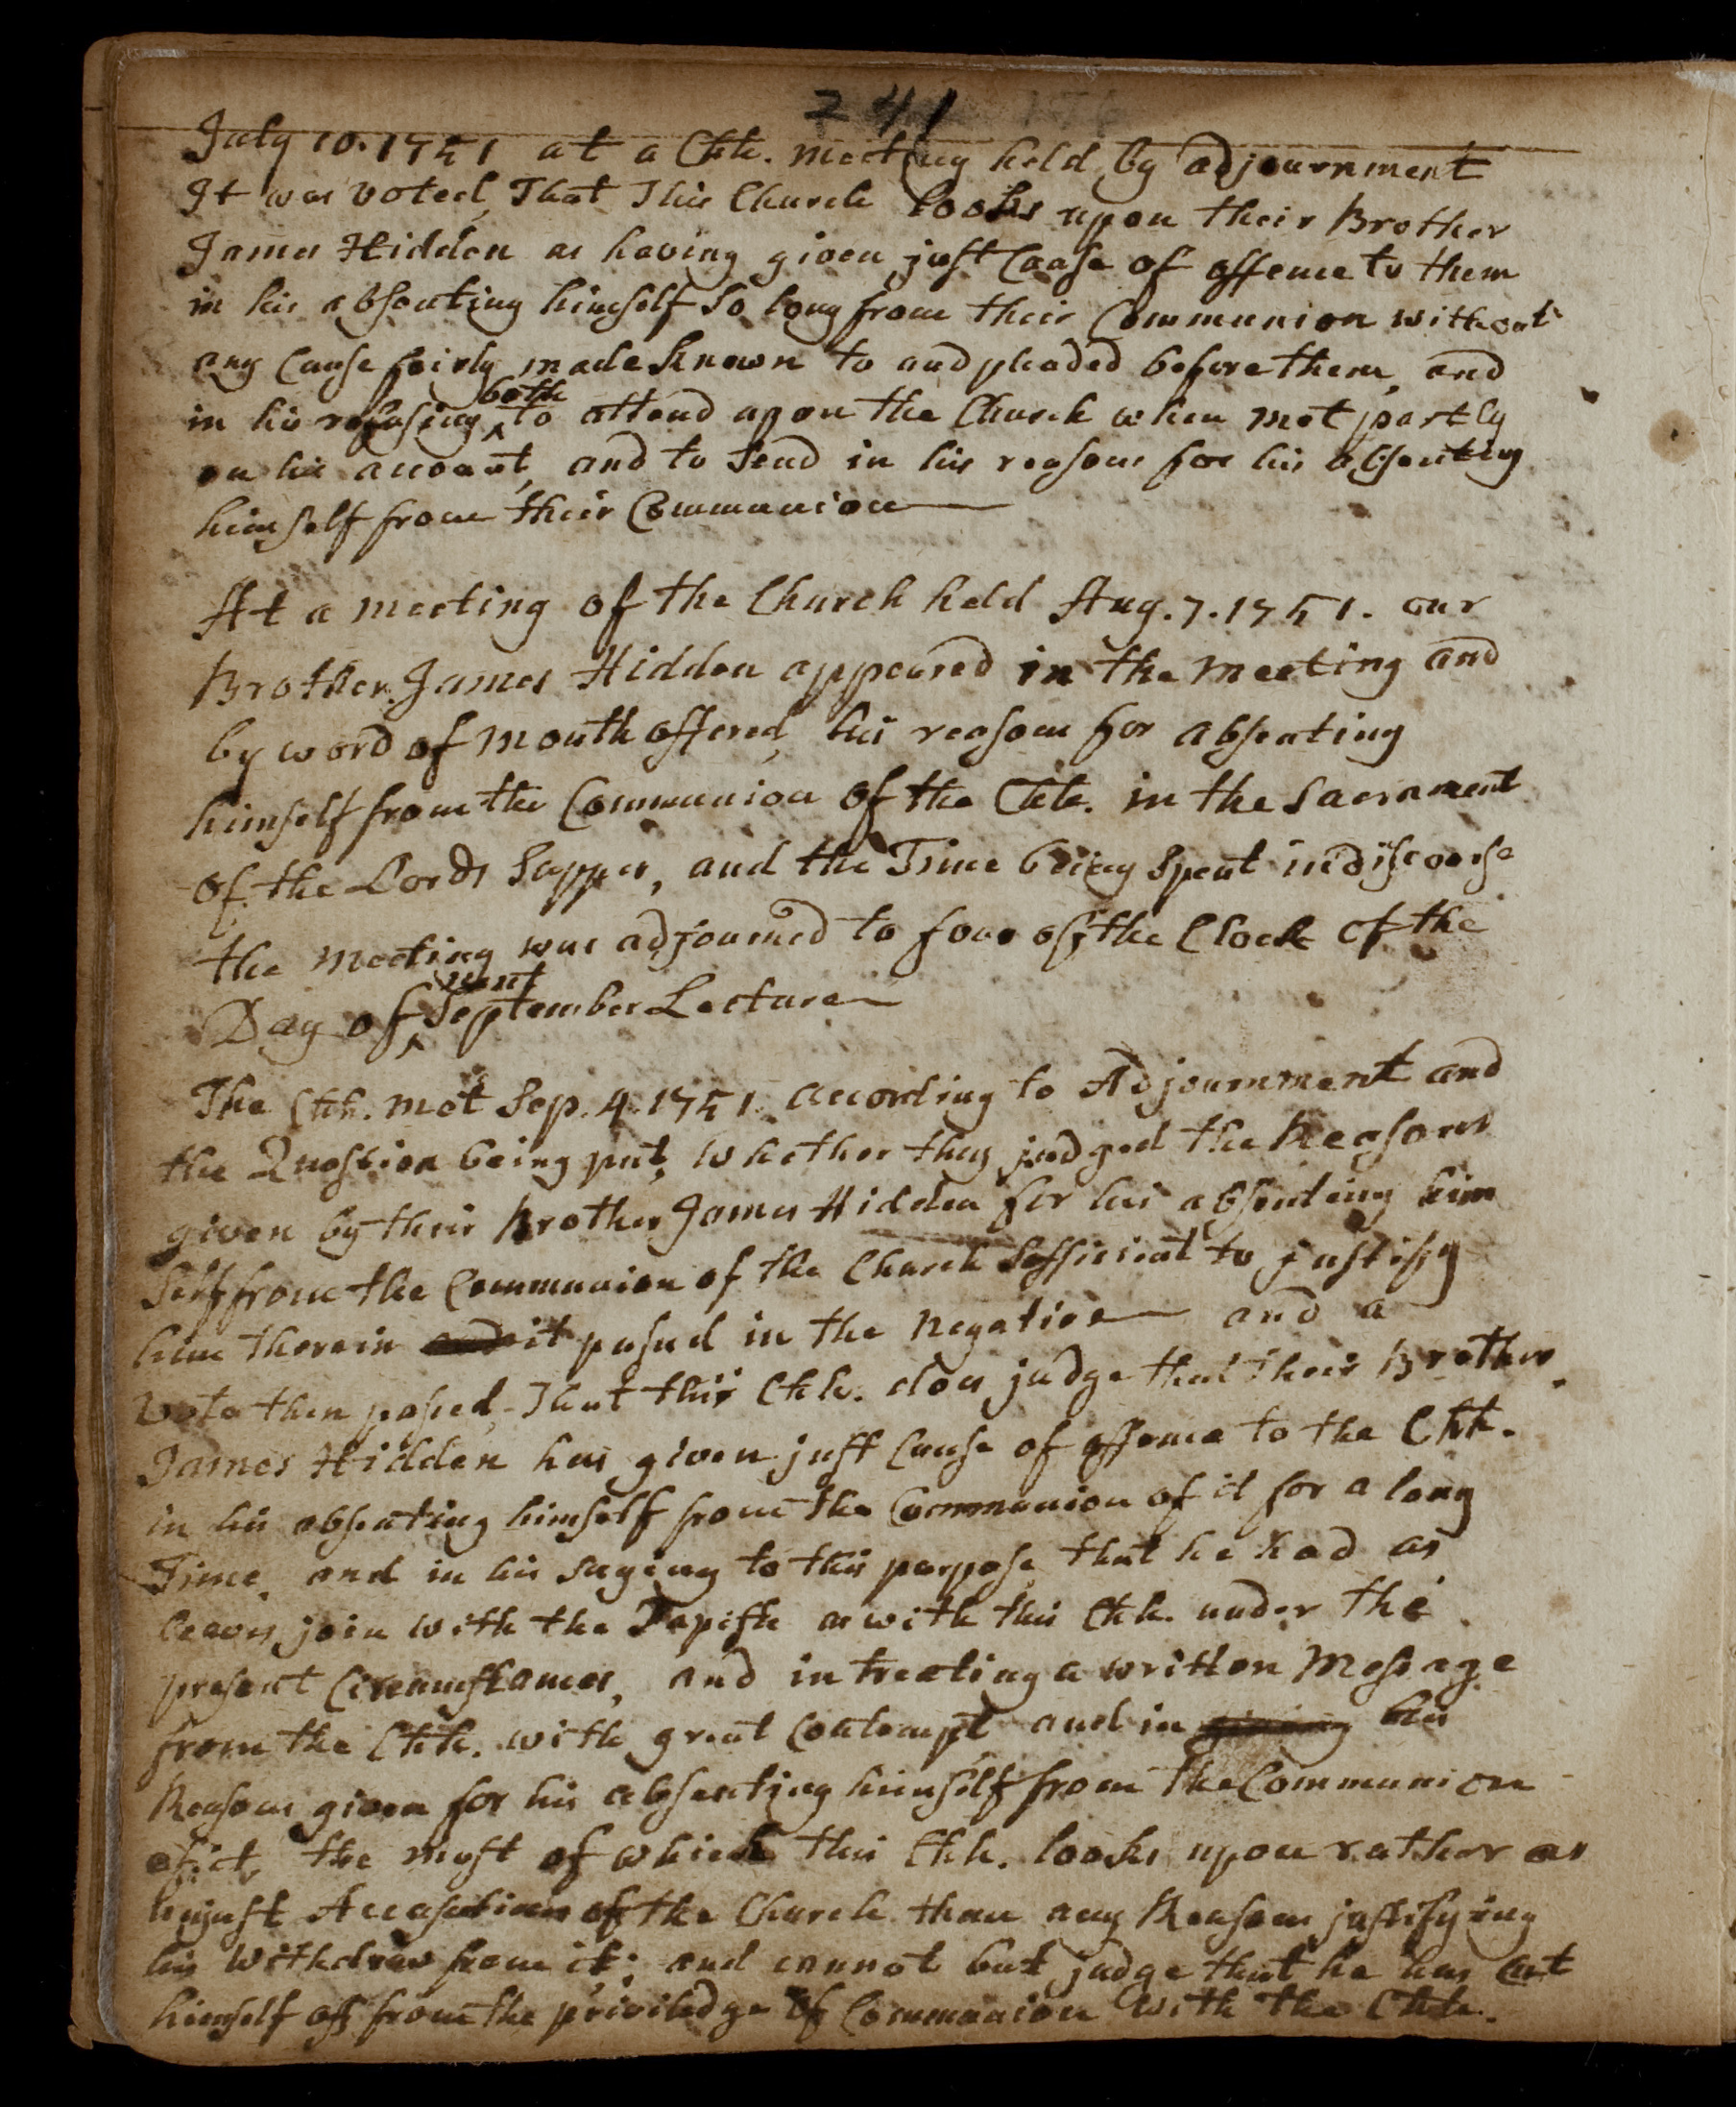 241
July 10. 1751 at a Chh. meeting held by adjournment
It was voted, That This Church looks upon their Brother
James Hidden as having given just Cause of offence to them
in his absenting himself so long from their Communion without
any Cause fairly made known to and pleaded before them, and
in his refusing both to attend upon the Church when met partly
on his account, and to send in his reasons for his absenting
himself from their Communion
At a meeting of the Church held Aug. 7. 1751. our
Brother James Hidden appeared in the meeting and
by word of mouth offered his reasons for absenting
himself from the Communion of the Chh. in the Sacrament
of the Lords Supper, and the Time being spent in discourse
the meeting was adjourned to four of the Clock of the
Day of next September Lecture
The Chh. met Sep. 4. 1751. according to Adjournment and
the Question being put, Whether they judged the Reasons
given by their Brother James Hidden for his absenting him
self from the Communion of the Church sufficient to justify
him therein and it passed in the negative and a
Vote then passed, That this Chh. does judge that their Brother
James Hidden has given just Cause of offence to the Chh.
in his absenting himself from the Communion of it for a long
Time, and in his saying to this purpose, that he had as
leave join with the Papists as with this Chh. under the
present Circumstances, and in treating a written Message
from the Chh. with great Contempt and in giving his
Reasons given for his absenting himself from the Communion
of it, the most of which this Chh. looks upon rather as
unjust Accusations of the Church than any Reasons justifying
his withdraw from it; and cannot but judge that he has Cut
himself off from the priviledge of Communion with the Chh.